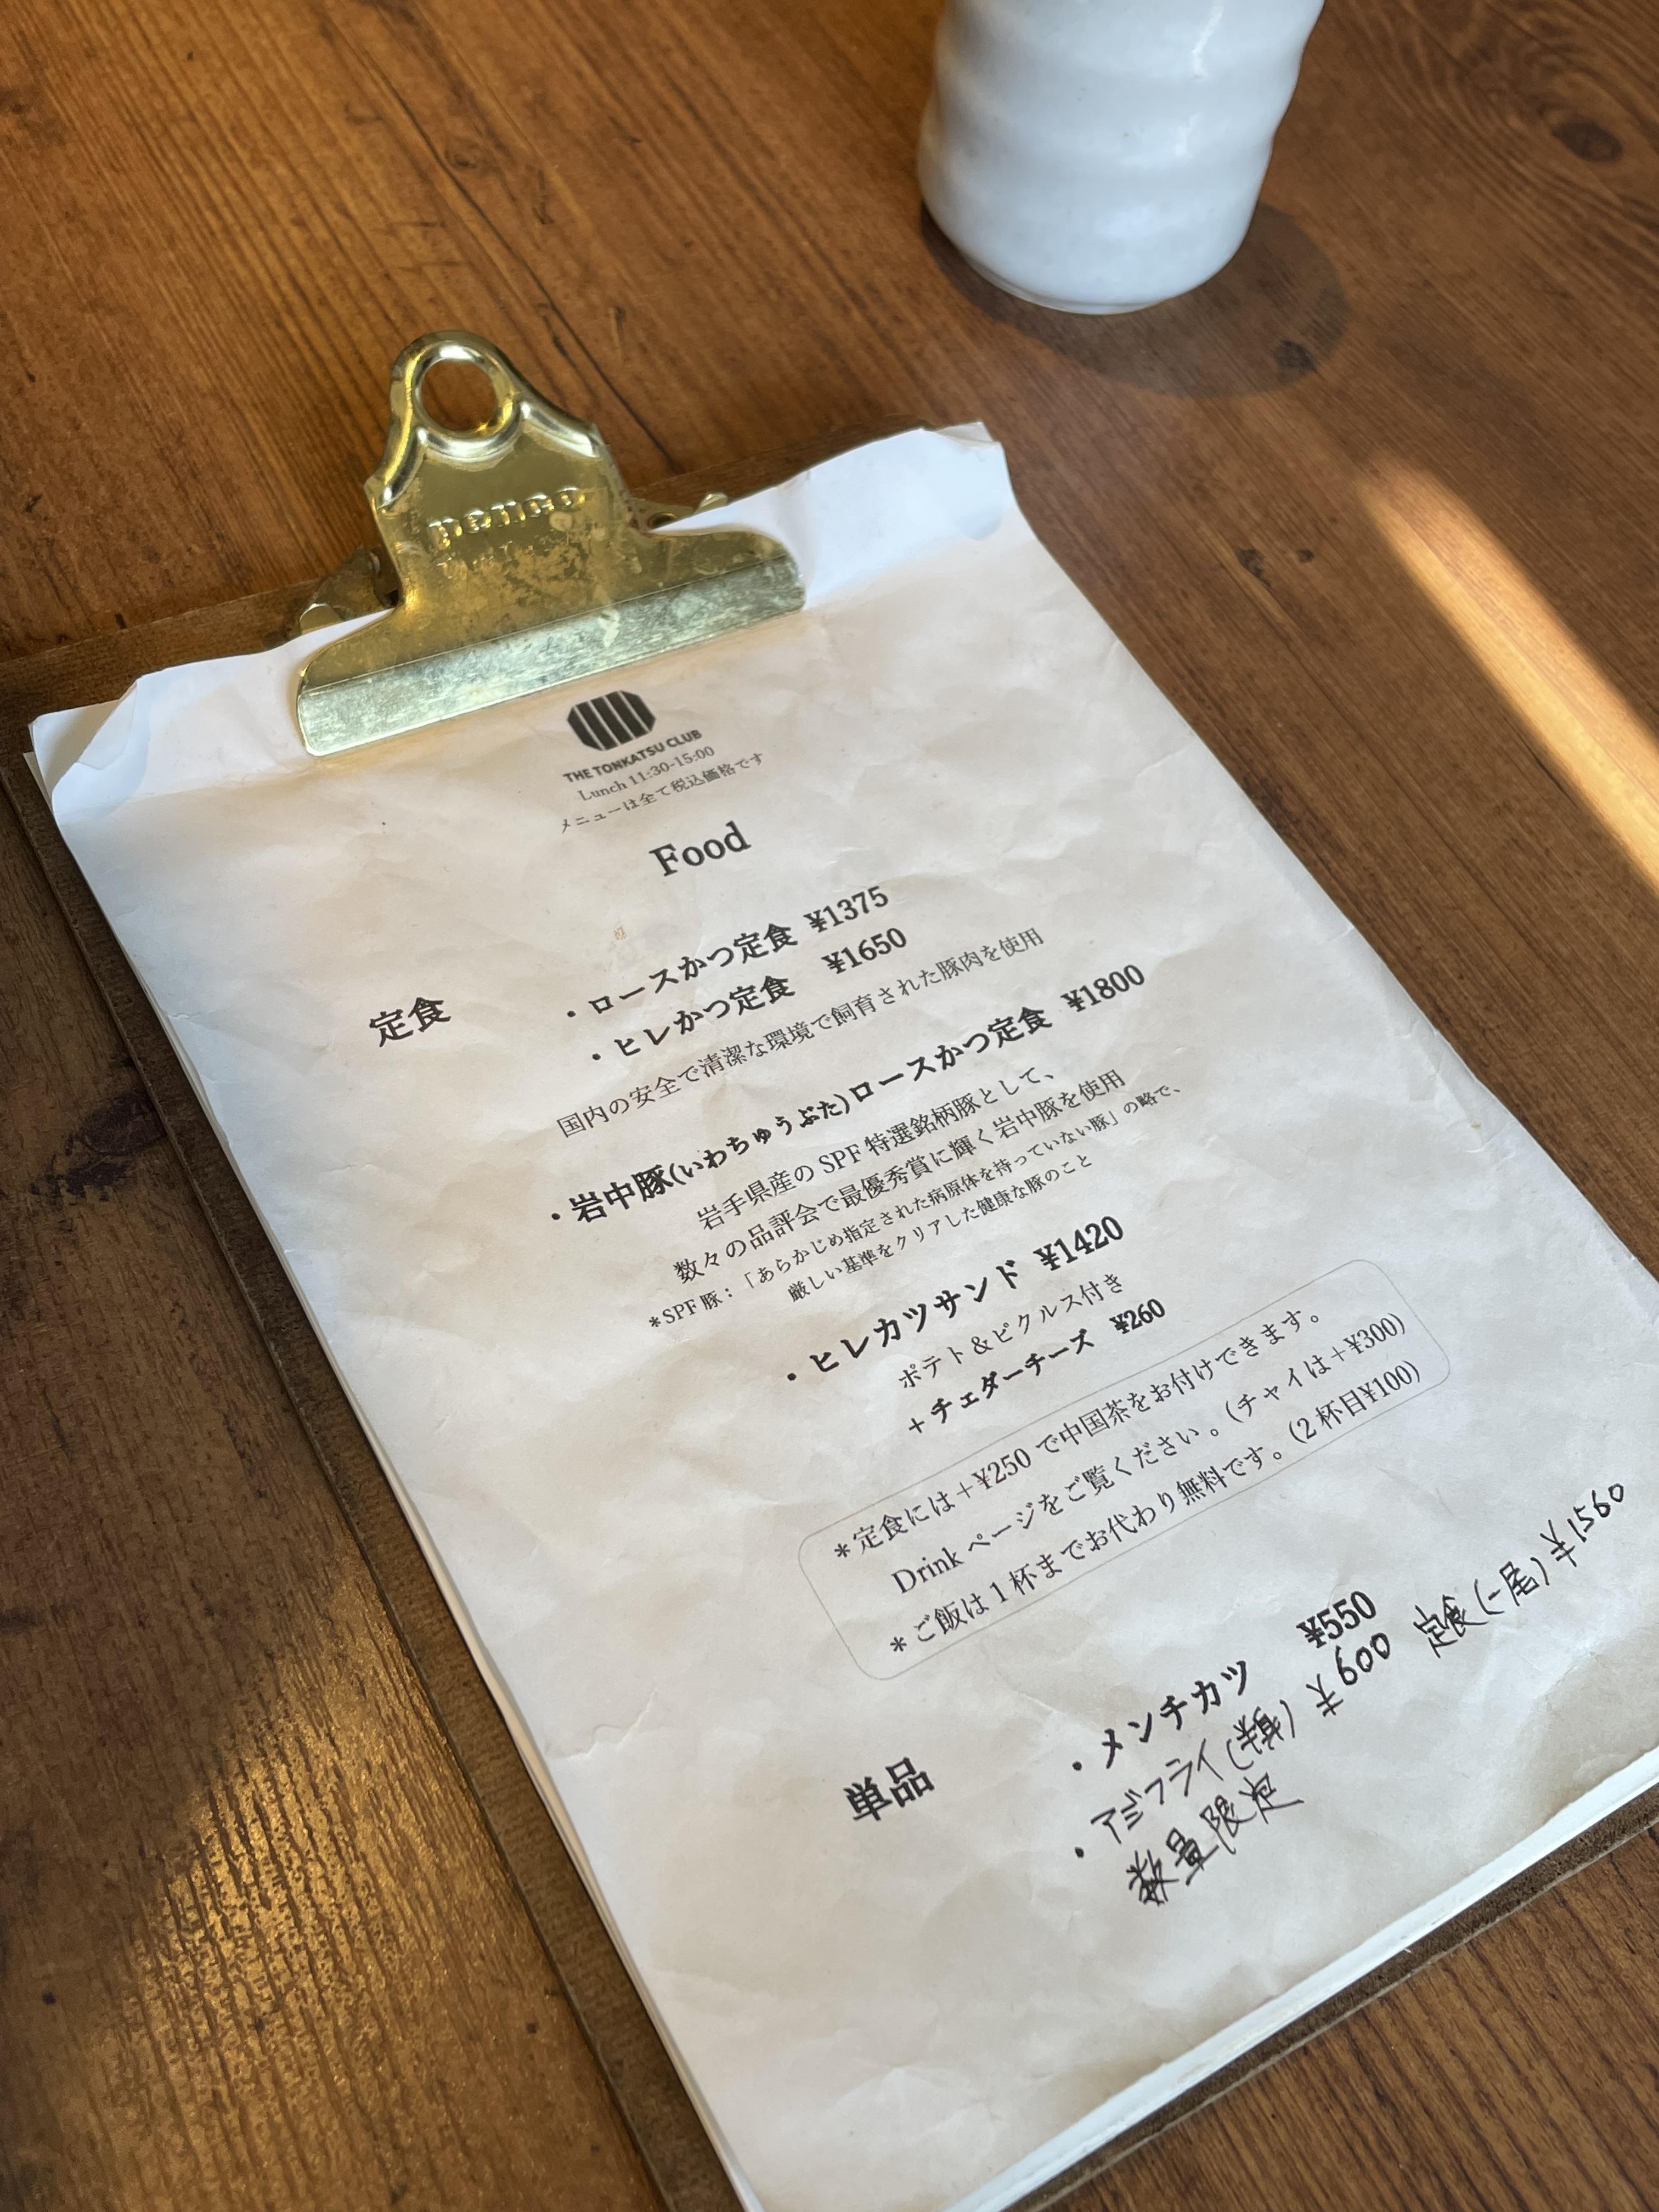 penco
THE TONKATSU CLUB
Lunch 11:30-15:00
メニューは全て税込価格です
Food
定食
・ロースかつ定食 ¥1375
・ヒレかつ定食 ¥1650
国内の安全で清潔な環境で飼育された豚肉を使用
・岩中豚(いわちゅうぶた)ロースかつ定食 ¥1800
岩手県産の SPF 特選銘柄豚として、
数々の品評会で最優秀賞に輝く岩中豚を使用
*SPF 豚:「あらかじめ指定された病原体を持っていない豚」の略で、
厳しい基準をクリアした健康な豚のこと
・ヒレカツサンド ¥1420
ポテト&ピクルス付き
+チェダーチーズ ¥260
*定食には+¥250 で中国茶をお付けできます。
Drink ページをご覧ください。(チャイは+¥300)
*ご飯は 1 杯までお代わり無料です。(2 杯目¥100)
単品
・メンチカツ ¥550
・アジフライ ¥600 定食(一尾)¥1560
数量限定